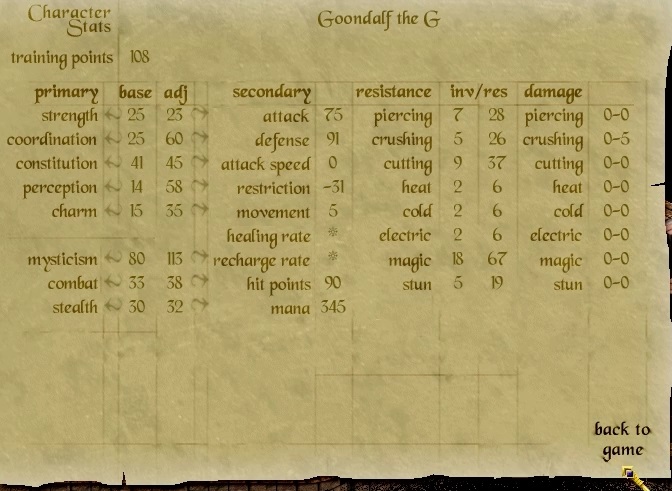 Character Stats
Goondalf the G
training points 108
primary base adj secondary resistance inv/res damage
strength 25 23 attack 75 piercing 7 28 piercing 0-0
coordination 25 60 defense 91 crushing 5 26 crushing 0-5
constitution 41 45 attack speed 0 cutting 9 37 cutting 0-0
perception 14 58 restriction -31 heat 2 6 heat 0-0
charm 15 35 movement 5 cold 2 6 cold 0-0
healing rate * electric 2 6 electric 0-0
mysticism 80 113 recharge rate * magic 18 67 magic 0-0
combat 33 38 hit points 90 stun 5 19 stun 0-0
stealth 30 32 mana 345
back to
game